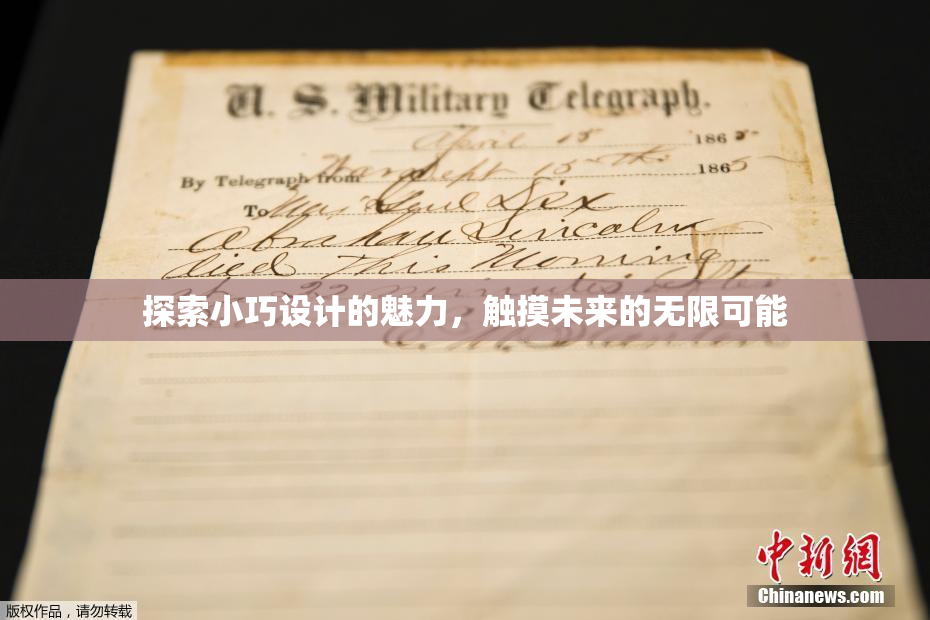 U. S. Military Telegraph.
April 15 1865
By Telegraph from War Dept 15th 1865
To Maj Genl Dix
Abraham Lincoln
died This Morning
at 22 minutes after
探索小巧设计的魅力，触摸未来的无限可能
E. M. Stanton
中新网
Chinanews.com
版权作品，请勿转载